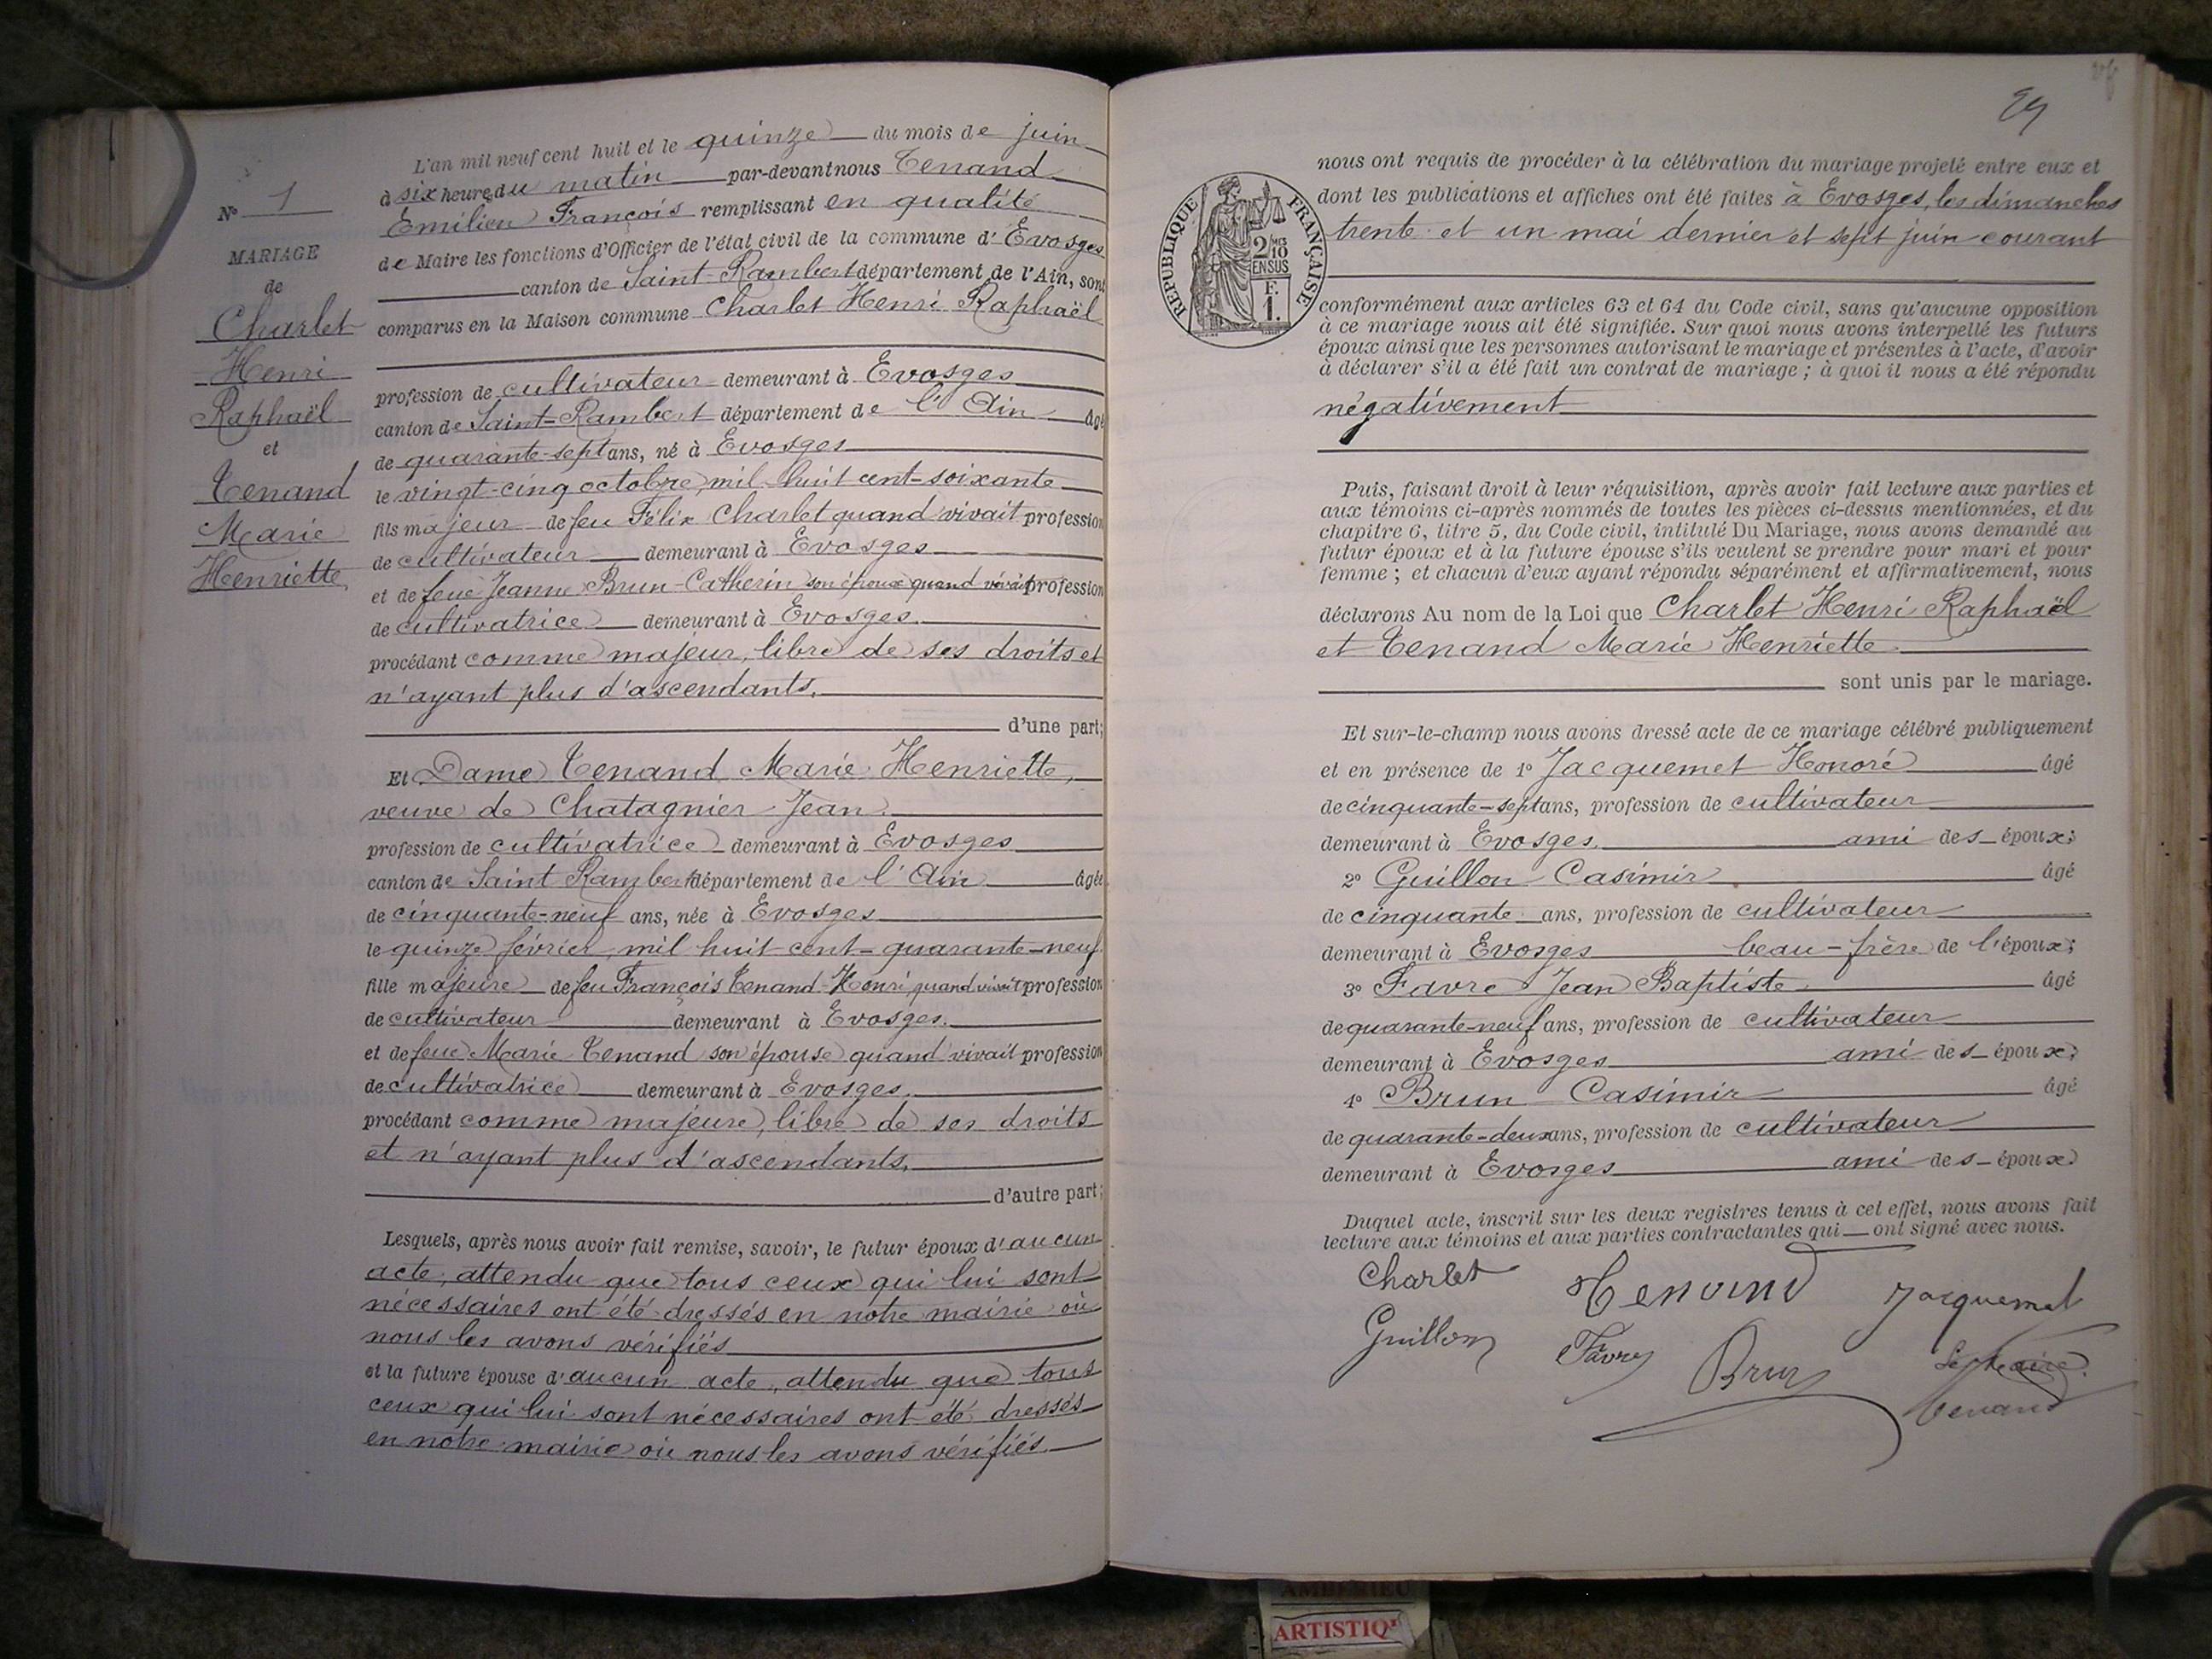 L'an mil neuf cent huit et le quinze du mois de juin
à six heures du matin par-devant nous Tenand
Emilien François remplissant en qualité
de Maire les fonctions d'Officier de l'état civil de la commune d' Evosges
canton de Saint-Rambert département de l'Ain, sont
comparus en la Maison commune Charlet Henri Raphaël
profession de cultivateur demeurant à Evosges
canton de Saint-Rambert département de l'Ain âgé
de quarante-sept ans, né à Evosges
le vingt-cinq octobre mil huit cent-soixante
fils majeur de feu Félix Charlet quand vivait profession
de cultivateur demeurant à Evosges
et de feue Jeanne Brun-Catherin son épouse quand vivait profession
de cultivatrice demeurant à Evosges.
procédant comme majeur, libre de ses droits et
n'ayant plus d'ascendants.
d'une part;
Et Dame Tenand Marie Henriette,
veuve de Chatagnier Jean.
profession de cultivatrice demeurant à Evosges
canton de Saint Rambert département de l'Ain âgée
de cinquante-neuf ans, née à Evosges
le quinze février, mil huit-cent-quarante-neuf
fille majeure de feu François Tenand-Henri, quand vivait profession
de cultivateur demeurant à Evosges.
et de feue Marie Tenand son épouse quand vivait profession
de cultivatrice demeurant à Evosges.
procédant comme majeure, libre de ses droits
et n'ayant plus d'ascendants.
d'autre part;
Lesquels, après nous avoir fait remise, savoir, le futur époux d'aucun
acte, attendu que tous ceux qui lui sont
nécessaires ont été dressés en notre mairie où
nous les avons vérifiés
et la future épouse d'aucun acte, attendu que tous
ceux qui lui sont nécessaires ont été dressés
en notre mairie où nous les avons vérifiés.
N° 1
MARIAGE
de
Charlet
Henri
Raphaël
et
Tenand
Marie
Henriette
nous ont requis de procéder à la célébration du mariage projeté entre eux et
dont les publications et affiches ont été faites à Evosges, les dimanches
trente et un mai dernier et sept juin courant
REPUBLIQUE FRANÇAISE
2/10
EN SUS
F.
1.
conformément aux articles 63 et 64 du Code civil, sans qu'aucune opposition
à ce mariage nous ait été signifiée. Sur quoi nous avons interpellé les futurs
époux ainsi que les personnes autorisant le mariage et présentes à l'acte, d'avoir
à déclarer s'il a été fait un contrat de mariage ; à quoi il nous a été répondu
négativement
Puis, faisant droit à leur réquisition, après avoir fait lecture aux parties et
aux témoins ci-après nommés de toutes les pièces ci-dessus mentionnées, et du
chapitre 6, titre 5, du Code civil, intitulé Du Mariage, nous avons demandé au
futur époux et à la future épouse s'ils veulent se prendre pour mari et pour
femme ; et chacun d'eux ayant répondu séparément et affirmativement, nous
déclarons Au nom de la Loi que Charlet Henri Raphaël
et Tenand Marie Henriette
sont unis par le mariage.
Et sur-le-champ nous avons dressé acte de ce mariage célébré publiquement
et en présence de 1° Jacquemet Honoré âgé
de cinquante-sept ans, profession de cultivateur
demeurant à Evosges. ami des époux;
2° Guillon Casimir âgé
de cinquante ans, profession de cultivateur
demeurant à Evosges beau-frère de l'époux;
3° Favre Jean Baptiste âgé
de quarante-neuf ans, profession de cultivateur
demeurant à Evosges ami des époux;
4° Brun Casimir âgé
de quarante-deux ans, profession de cultivateur
demeurant à Evosges ami des époux
Duquel acte, inscrit sur les deux registres tenus à cet effet, nous avons fait
lecture aux témoins et aux parties contractantes qui ont signé avec nous.
Charlet Henand Jacquemet
Guillon Favre Brun Le Maire
Tenand
AMBERIEU
ARTISTIQ